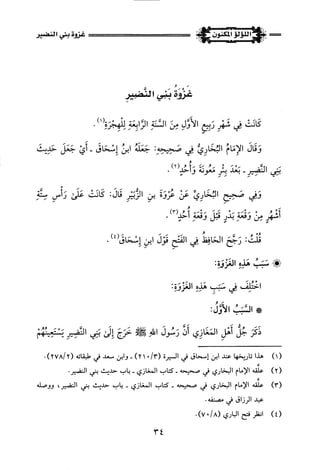 اللؤلؤ المكنون
غزوة بني النضير
غَزْوَةُ بَنِي النَّضِيرِ
كَانَتْ فِي شَهْرِ رَبِيعِ الأَوَّلِ مِنَ السَّنَةِ الرَّابِعَةِ لِلْهِجْرَةِ(١).
وَقَالَ الإِمَامُ البُخَارِيُّ فِي صَحِيحِهِ: جَعَلَهُ ابنُ إِسْحَاقَ - أَيْ جَعَلَ حَدِيثَ
بَنِي النَّضِيرِ - بَعْدَ بِئْرِ مَعُونَةَ وَأُحُدٍ(٢).
وَفِي صَحِيحِ البُخَارِيِّ عَنْ عُرْوَةَ بنِ الزُّبَيْرِ قَالَ: كَانَتْ عَلَى رَأْسِ سِتَّةِ
أَشْهُرٍ مِنْ وَقْعَةِ بَدْرٍ قَبْلَ وَقْعَةِ أُحُدٍ(٣).
قُلْتُ: رَجَّحَ الحَافِظُ فِي الفَتْحِ قَوْلَ ابنِ إِسْحَاقَ(٤).
سَبَبُ هَذِهِ الغَزْوَةِ:
اخْتُلِفَ فِي سَبَبِ هَذِهِ الغَزْوَةِ:
* السَّبَبُ الأَوَّلُ:
ذَكَرَ جُلُّ أَهْلِ المَغَازِي أَنَّ رَسُولَ اللهِ ﷺ خَرَجَ إِلَى بَنِي النَّضِيرِ يَسْتَعِينُهُمْ
(١) هذا تاريخها عند ابن إسحاق في السيرة (٢١٠/٣) - وابن سعد في طبقاته (٢٧٨/٢).
(٢) علّقه الإمام البخاري في صحيحه - كتاب المغازي - باب حديث بني النضير.
(٣) علّقه الإمام البخاري في صحيحه - كتاب المغازي - باب حديث بني النضير، ووصله
عبد الرزاق في مصنفه.
(٤) انظر فتح الباري (٧٠/٨).
٣٤